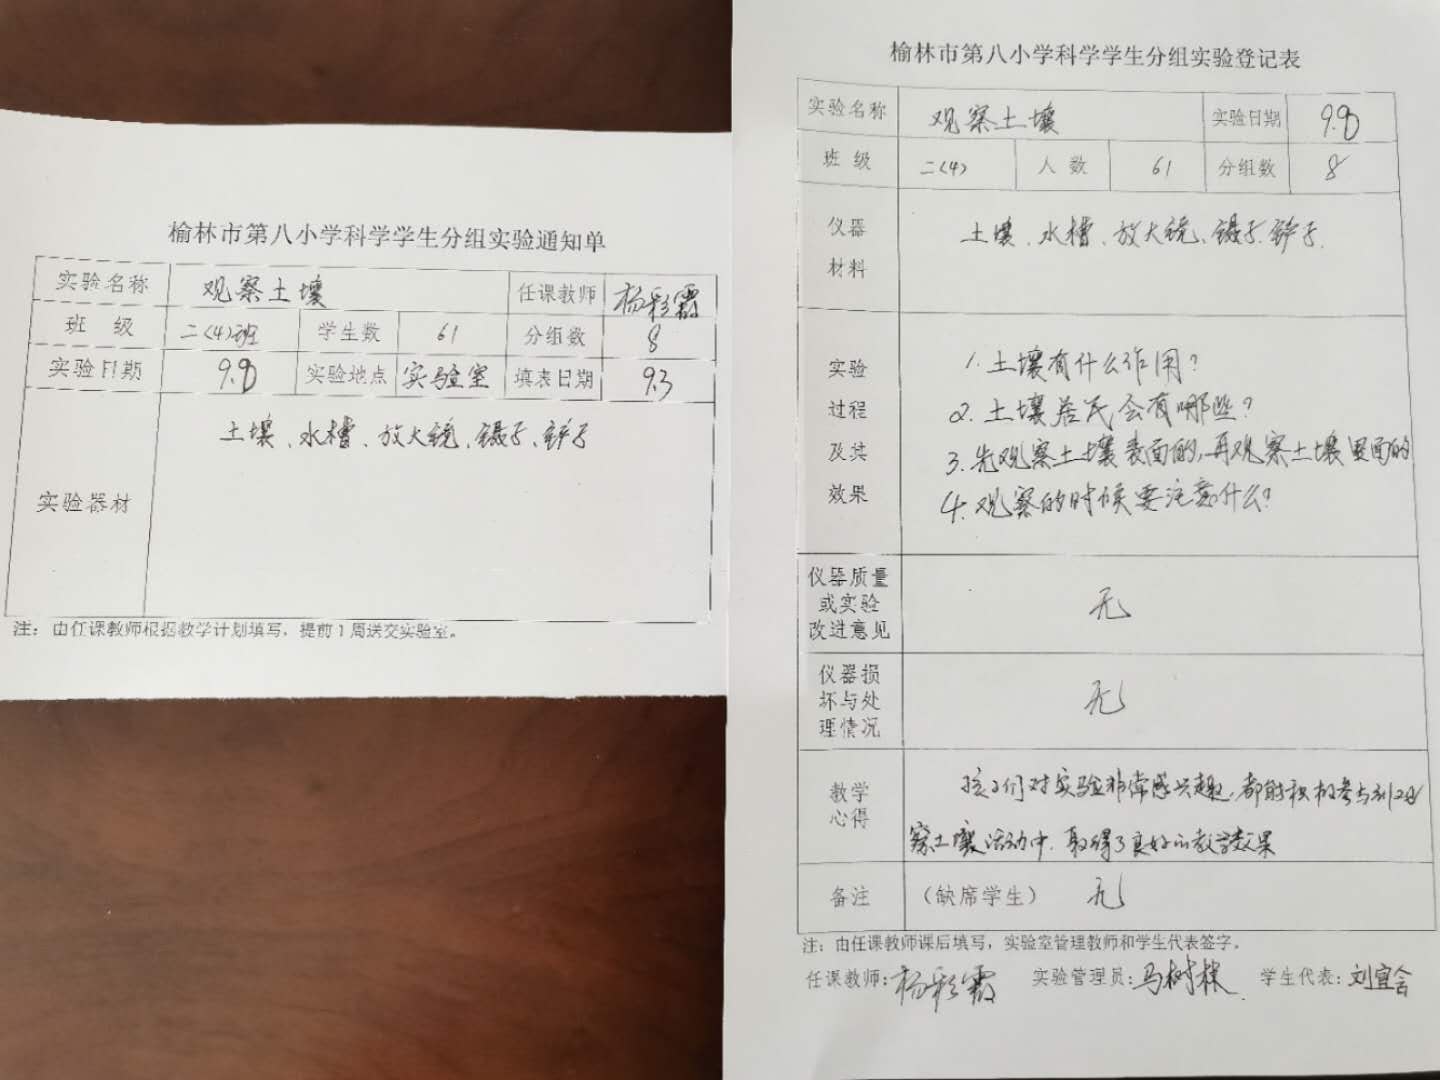 榆林市第八小学科学学生分组实验通知单
实验名称 观察土壤 任课教师 杨彩霞
班 级 二(4)班 学生数 61 分组数 8
实验日期 9.9 实验地点 实验室 填表日期 9.3
实验器材 土壤、水槽、放大镜、镊子、铲子
注：由任课教师根据教学计划填写，提前1周送交实验室。
榆林市第八小学科学学生分组实验登记表
实验名称 观察土壤 实验日期 9.9
班 级 二(4) 人 数 61 分组数 8
仪器
材料
土壤、水槽、放大镜、镊子、铲子.
实验
过程
及其
效果
1. 土壤有什么作用?
2. 土壤居民会有哪些?
3. 先观察土壤表面的,再观察土壤里面的
4. 观察的时候要注意什么?
仪器质量
或实验
改进意见
无
仪器损
坏与处
理情况
无
教学
心得
孩子们对实验非常感兴趣,都能积极参与到观
察土壤活动中,取得了良好的教学效果
备注 （缺席学生） 无
注：由任课教师课后填写，实验室管理教师和学生代表签字。
任课教师:杨彩霞 实验管理员:马树林 学生代表:刘宜会